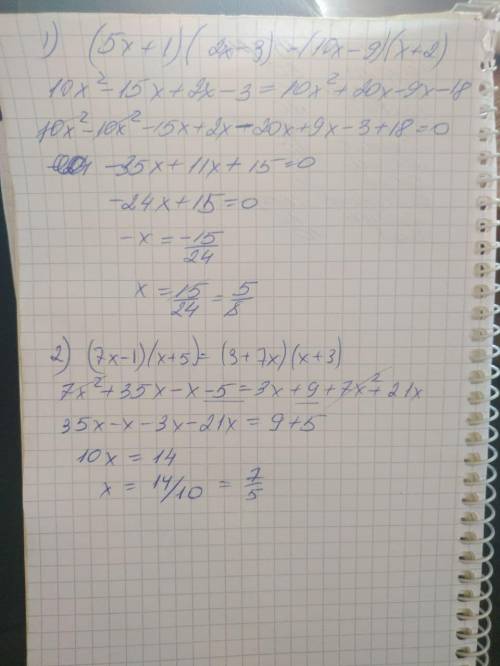 1) (5x+1)(2x-3) = (10x-9)(x+2)
10x²-15x+2x-3=10x²+20x-9x-18
10x²-10x²-15x+2x-20x+9x-3+18=0
-35x+11x+15=0
-24x+15=0
-x = -15/24
x = 15/24 = 5/8
2) (7x-1)(x+5)= (3+7x)(x+3)
7x²+35x-x-5=3x+9+7x²+21x
35x-x-3x-21x=9+5
10x=14
x = 14/10 = 7/5